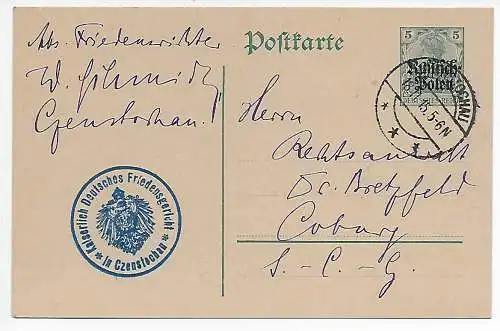 Abs. Friedensrichter
W. Schmidt
Czenstochau!
Postkarte
5 5
Russisch-
Polen
5-6N
Kaiserlich Deutsches Friedensgericht
* in Czenstochau *
Herrn
Rechtsanwalt
Dr. Bretzfeld
Coburg
S.-C.-G.